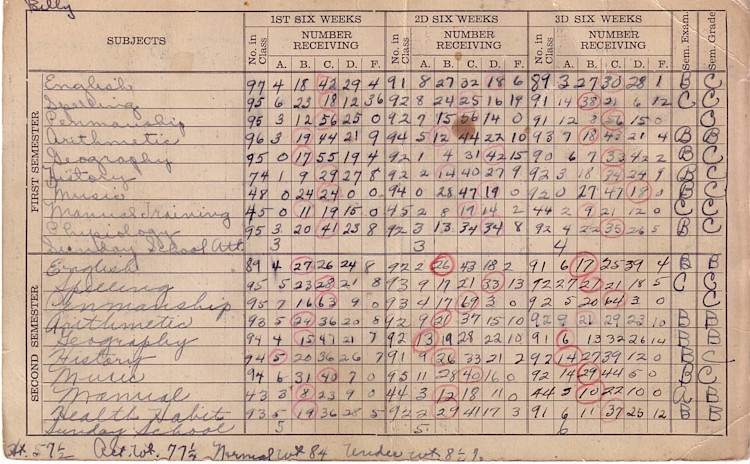 Billy
SUBJECTS
1ST SIX WEEKS 2D SIX WEEKS 3D SIX WEEKS
No. in Class NUMBER RECEIVING No. in Class NUMBER RECEIVING No. in Class NUMBER RECEIVING Sem. Exam. Sem. Grade
A. B. C. D. F. A. B. C. D. F. A. B. C. D. F.
FIRST SEMESTER
English 97 4 18 42 29 4 91 8 27 32 18 6 89 3 27 30 28 1 B C
Spelling 95 6 23 18 12 36 92 8 24 25 16 19 91 14 38 21 6 12 C C
Penmanship 95 3 12 56 25 0 92 7 15 56 14 0 91 12 8 56 15 0 C
Arithmetic 96 3 19 44 21 9 94 5 12 44 22 10 93 7 18 42 21 4 B B
Geography 95 0 17 55 19 4 92 1 4 31 42 15 90 6 7 33 42 2 B C
History 74 1 9 29 27 8 92 2 14 40 27 9 92 3 18 34 29 B C
Music 48 0 24 24 0 0 94 0 28 47 19 0 92 0 27 47 18 0 B C
Manual Training 45 0 11 19 15 0 45 2 8 19 14 2 44 2 9 21 12 0 C C
Physiology 95 3 20 41 23 8 92 3 13 34 34 8 92 4 22 35 26 5 B C
Sunday School Att. 3 3 4
SECOND SEMESTER
English 89 4 27 26 24 8 92 2 26 43 18 2 91 6 17 25 39 4 B B
Spelling 95 5 23 28 21 8 93 9 17 21 33 13 92 27 27 21 18 5 C C
Penmanship 95 7 16 63 9 0 93 4 17 69 3 0 92 5 20 64 3 0 C
Arithmetic 93 5 24 36 20 8 92 9 21 37 15 10 92 9 21 29 23 10 B B
Geography 94 4 15 47 21 7 92 13 19 28 22 10 91 6 13 32 26 14 B B
History 94 5 20 36 26 7 91 9 26 33 21 2 92 14 27 39 12 0 B C
Music 94 6 31 40 7 0 95 11 28 40 16 0 92 14 29 44 5 0 B C
Manual 43 3 8 23 9 0 44 3 12 18 11 0 44 3 10 22 10 0 B
Health Habit 93 5 19 36 28 5 92 2 29 41 17 3 91 6 11 37 25 12 B B
Sunday School 5 5. 6
Ht. 57½ Act. Wt. 77½ Normal Wt 84 Under wt